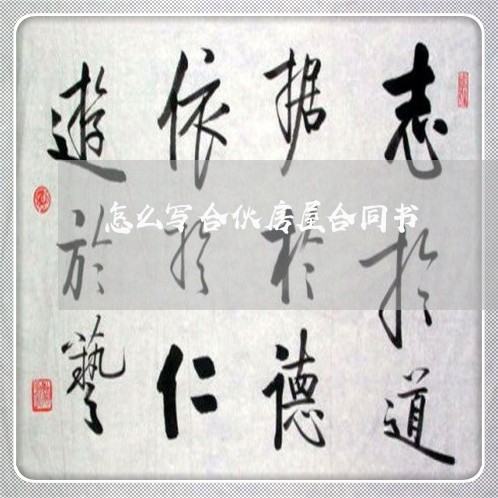 志於道
据於德
依於仁
遊於藝
怎么写合伙房屋合同书